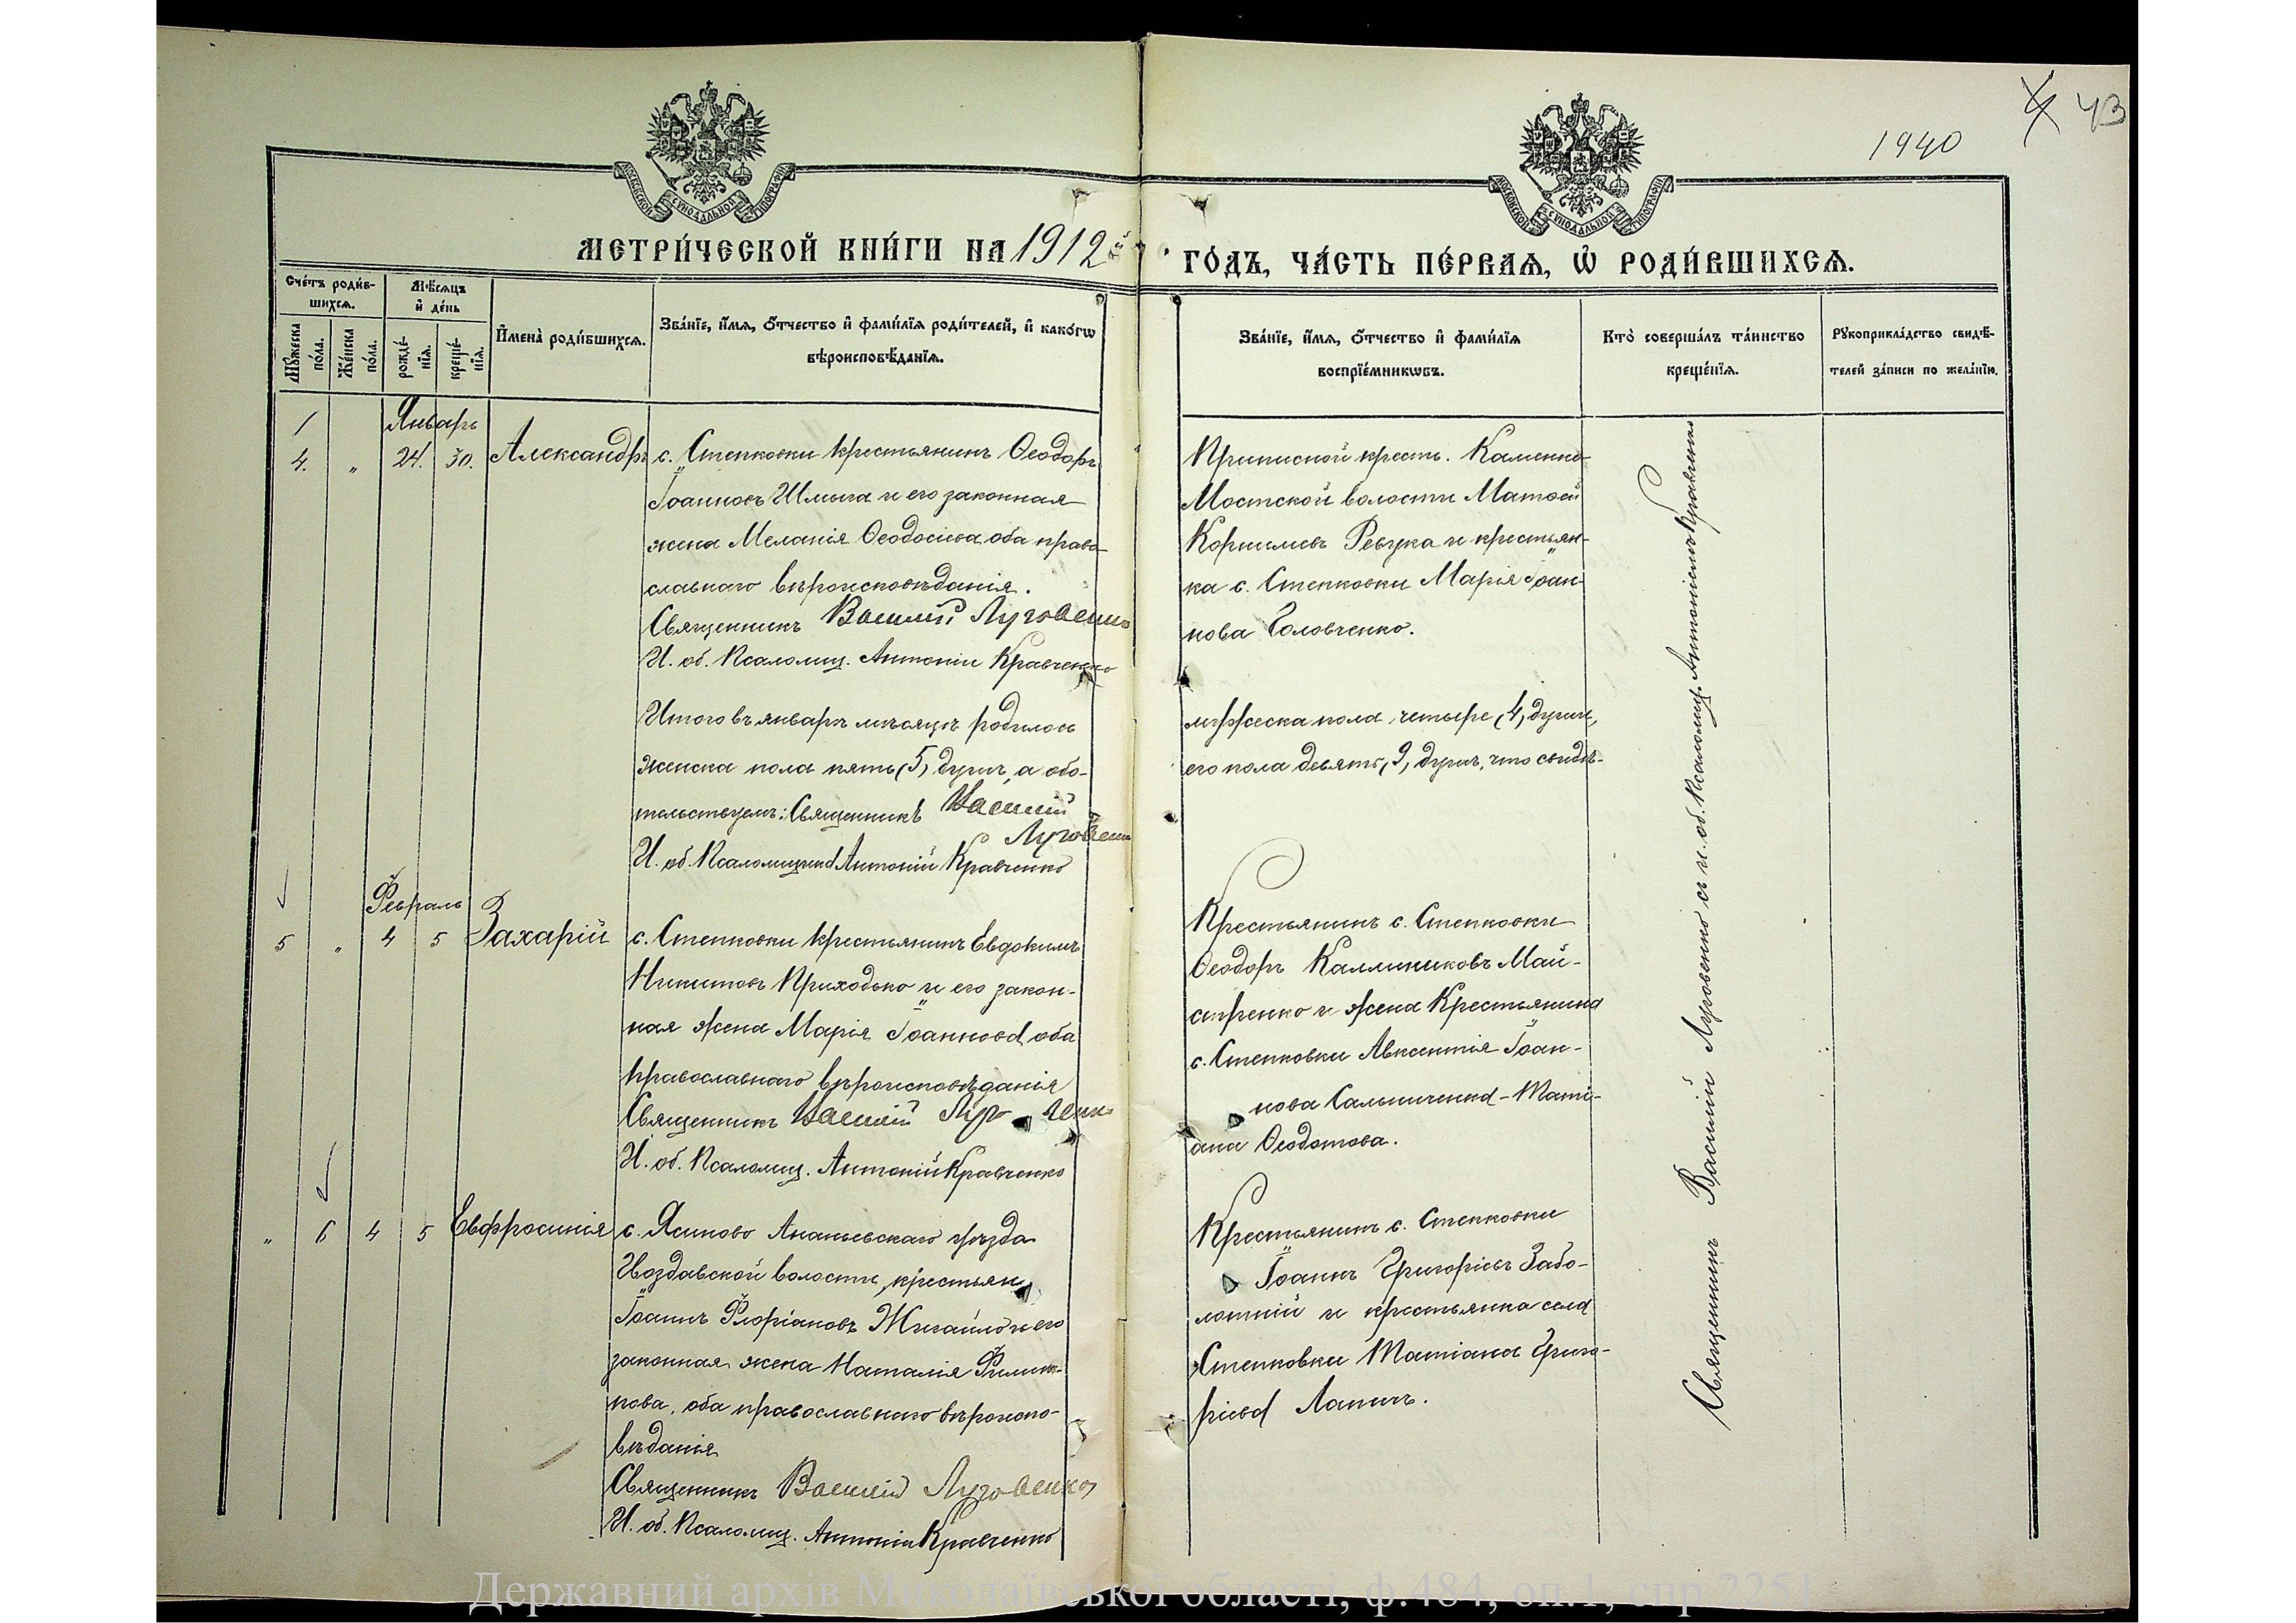 43
1940
МОСКОВСКОЙ СУНОДАЛЬНОЙ ТИПОГРАФІИ
МОСКОВСКОЙ СУНОДАЛЬНОЙ ТИПОГРАФІИ
МЕТРИ́ЧЕСКОЙ КНИ́ГИ НА 1912й
ГО́ДЪ, ЧА́СТЬ ПЕ́РВАѦ, Ѡ҆ РОДИ́ВШИХСѦ.
Сче́тъ роди́в-
шихсѧ.
Мѣ́сѧцъ
и҆ де́нь
Мꙋ́жеска
по́ла.
Же́нска
по́ла.
рожде́-
нїѧ.
креще́-
нїѧ.
И҆мена̀ роди́вшихсѧ.
Зва́нїе, и҆́мѧ, ѻ҆́тчество и҆ фами́лїѧ роди́телей, и҆ како́гѡ
вѣроисповѣ́данїѧ.
Зва́нїе, и҆́мѧ, ѻ҆́тчество и҆ фами́лїѧ
воспрїе́мникѡвъ.
Кто̀ соверша́лъ та́инство
креще́нїѧ.
Рꙋкоприкла́дство свидѣ́-
телей за́писи по жела́нїю.
Январь
4. „ 24. 30. Александръ
с. Степковки крестьянинъ Ѳеодоръ
Іоанновъ Шмыга и его законная
жена Меланія Ѳеодосіева оба право-
славнаго вѣроисповѣданія.
Священникъ Василій Луговенко
И. об. Псаломщ. Антоній Кравченко
Приписной крест. Каменно-
Мостской волости Матѳей
Корнилевъ Ревука и крестьян-
ка с. Степковки Марія Іоан-
нова Головченко.
Итого въ январѣ мѣсяцѣ родилось
женска пола пять (5) душъ, а обо-
тельствуемъ: Священникъ Василій
Луговенко
И. об. Псаломщика Антоній Кравченко
мужеска пола четыре (4) души,
его пола девять (9) душъ, что свидѣ-
Февраль
5 „ 4 5 Захарій
с. Степковки крестьянинъ Евдокимъ
Никитовъ Приходько и его закон-
ная жена Марія Іоаннова оба
православнаго вѣроисповѣданія
Священникъ Василій
И. об. Псаломщ. Антоній Кравченко
Крестьянинъ с. Степковки
Ѳеодоръ Каллиниковъ Май-
стренко и жена Крестьянина
с. Степковки Авксентія Іоан-
нова Сальниченка - Таті-
ана Ѳеодотова.
„ 6 4 5 Евфросинія
с. Ясиново Ананьевскаго уѣзда
Гвоздавской волости, крестьян.
Іоаннъ Флоріановъ Жигайло и его
законная жена Наталія Филип-
пова, оба православнаго вѣроиспо-
вѣданія
Священникъ Василій Луговенко
И. об. Псаломщ. Антоній Кравченко
Крестьянинъ с. Степковки
Іоаннъ Григорьевъ Забо-
лотній и крестьянка села
Степковки Татіана Григо-
ріева
Священникъ Василій Луговенко съ и. об. Псаломщ. Антоніемъ Кравченко
Державний архів Миколаївської області, ф.484, оп.1, спр.2251